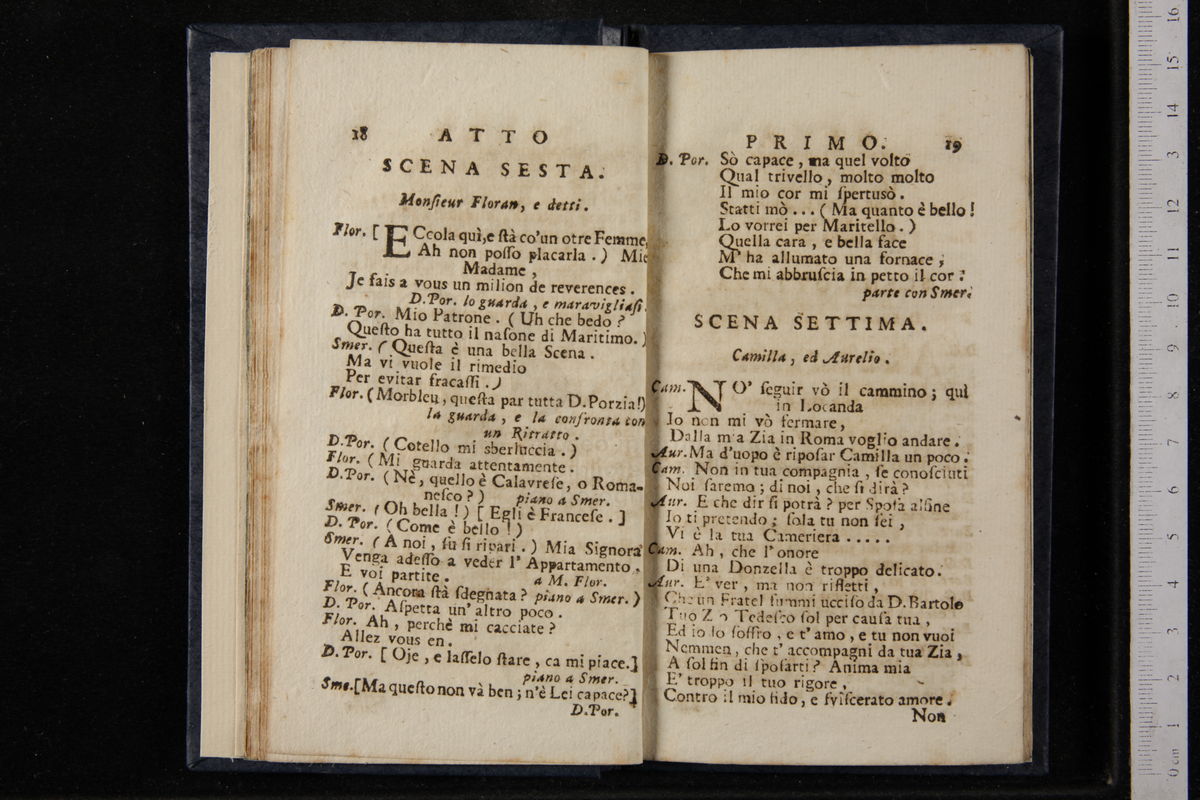 18 ATTO
SCENA SESTA.
Monsieur Floran, e detti.
Flor. [ ECcola quì,e ſtà co'un otre Femme,
Ah non poſſo placarla . ) Mie
Madame ,
Je fais a vous un milion de reverences .
D.Por. lo guarda , e maravigliaſi.
D. Por. Mio Patrone . ( Uh che bedo ?
Queſto ha tutto il naſone di Maritimo. )
Smer. ( Queſta è una bella Scena .
Ma vi vuole il rimedio
Per evitar fracaſſi . )
Flor. ( Morbleu, queſta par tutta D.Porzia!)
la guarda , e la confronta con
un Ritratto .
D.Por. ( Cotello mi sberluccia . )
Flor. ( Mi guarda attentamente .
D.Por. ( Nè, quello è Calavreſe, o Roma-
neſco ? ) piano a Smer.
Smer. ( Oh bella ! ) [ Egli è Franceſe . ]
D. Por. ( Come è bello ! )
Smer. ( A noi , ſu ſi ripari . ) Mia Signora
Venga adeſſo a veder l' Appartamento .
E voi partite . a M. Flor.
Flor. ( Ancora ſtà ſdegnata ? piano a Smer. )
D. Por. Aſpetta un' altro poco .
Flor. Ah , perchè mi cacciate ?
Allez vous en .
D. Por. [ Oje , e laſſelo ſtare , ca mi piace.]
piano a Smer.
Sme.[Ma queſto non và ben ; n'è Lei capace?]
D.Por.
PRIMO. 19
D. Por. Sò capace , ma quel volto
Qual trivello , molto molto
Il mio cor mi ſpertusò .
Statti mò . . . ( Ma quanto è bello !
Lo vorrei per Maritello . )
Quella cara , e bella face
M' ha allumato una fornace ,
Che mi abbruſcia in petto il cor .
parte con Smer.
SCENA SETTIMA.
Camilla , ed Aurelio .
Cam. NO' ſeguir vò il cammino ; quì
in Locanda
Io non mi vò fermare ,
Dalla mia Zia in Roma voglio andare .
Aur. Ma d'uopo è ripoſar Camilla un poco .
Cam. Non in tua compagnia , ſe conoſciuti
Noi ſaremo ; di noi , che ſi dirà ?
Aur. E che dir ſi potrà ? per Spoſa alfine
Io ti pretendo ; ſola tu non ſei ,
Vi è la tua Cameriera . . . . .
Cam. Ah , che l' onore
Di una Donzella è troppo delicato .
Aur. E' ver , ma non rifletti ,
Che un Fratel ſummi ucciſo da D.Bartolo
Tuo Zio Tedeſco ſol per cauſa tua ,
Ed io lo ſoffro , e t' amo , e tu non vuoi
Nemmen , che t' accompagni da tua Zia ,
A ſol fin di ſpoſarti ? Anima mia
E' troppo il tuo rigore ,
Contro il mio fido , e ſviſcerato amore .
Non